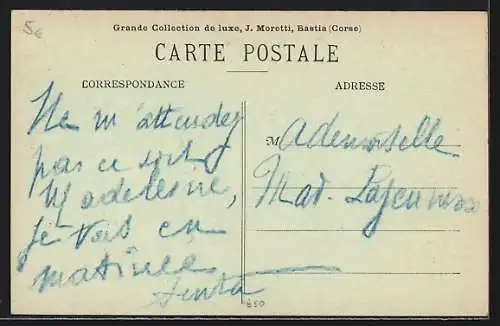 5€
Grande Collection de luxe, J. Moretti, Bastia (Corse)
CARTE POSTALE
CORRESPONDANCE
ADRESSE
Ne m'attendez
pas ce soir
Madeleine,
je vais en
matinée
Mademoiselle
Mad.
850